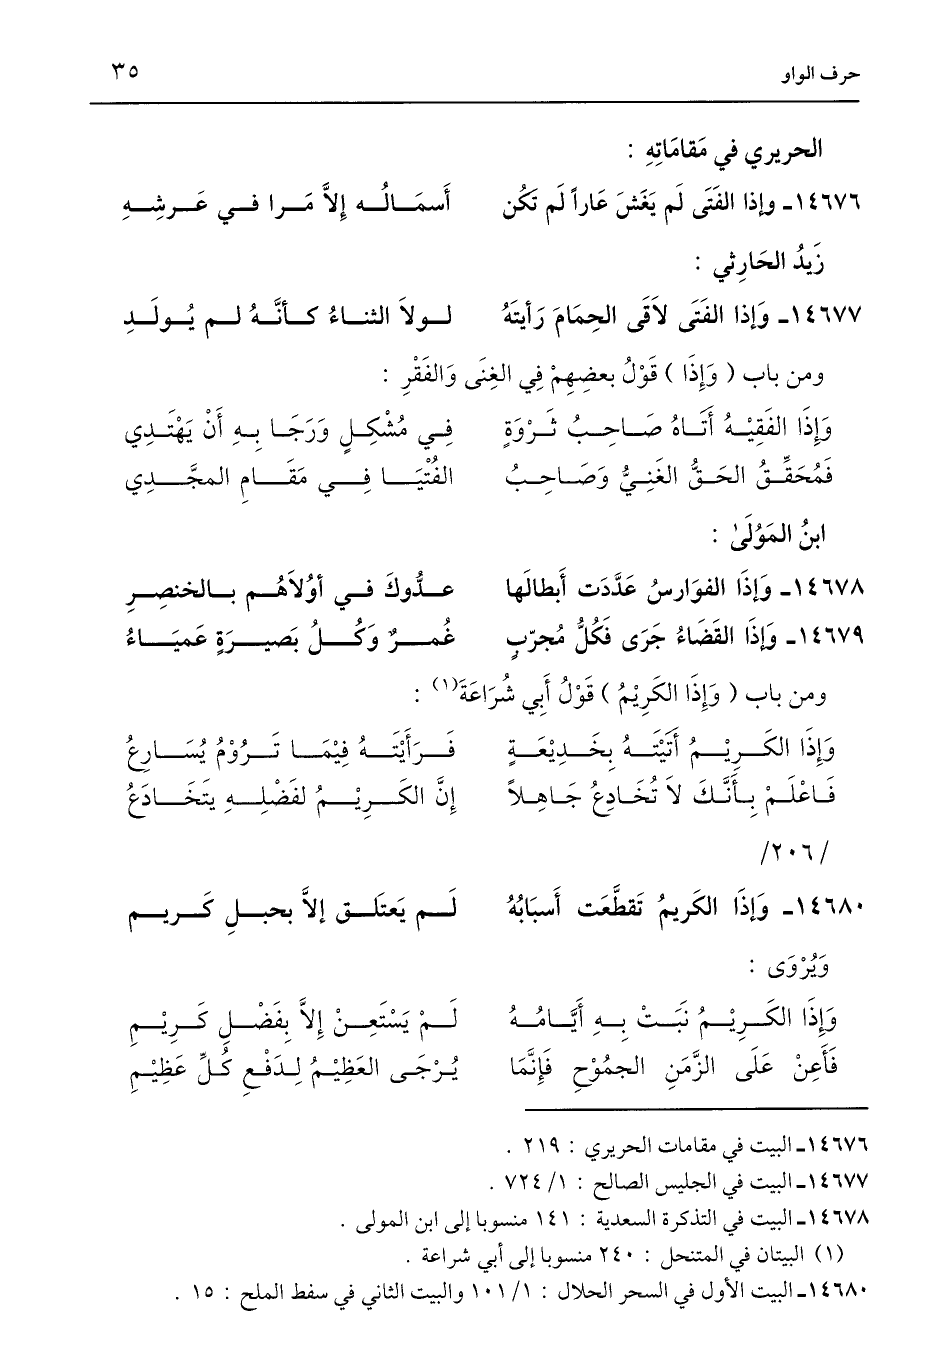 حرف الواو ٣٥
الحريري في مَقامَاتِهِ :
١٤٦٧٦ـ وإذا الفَتَى لَم يَغَشَ عَاراً لَم تَكُن أَسمَـالُـه إلاَّ مَـرا فـي عَـرشِـهِ
زَيدُ الحَارِثي :
١٤٦٧٧ـ وَإذا الفَتَى لاَقَى الحِمَامَ رَأيتَهُ لـولاَ الثنـاءُ كـأنَّـهُ لـم يُـولَـدِ
ومن باب ( وَإِذَا ) قَوْلُ بعضِهِمْ فِي الغِنَى وَالفَقْرِ :
وَإِذَا الفَقِيْـهُ أَتَـاهُ صَـاحِـبُ ثَـرْوَةٍ فِـي مُشْكِـلٍ وَرَجَـا بِـهِ أَنْ يَهْتَـدِي
فَمُحَقِّـقُ الحَـقُّ الغَنِـيُّ وَصَـاحِـبُ الفُتْيَـا فِـي مَقَـامِ المجَّـدِي
ابنُ المَوْلَىٰ :
١٤٦٧٨ـ وَإِذَا الفوَارسُ عَدَّدَت أَبطالَها عـدُّوكَ فـي أوُلاَهُـم بـالخنصِـرِ
١٤٦٧٩ـ وَإِذَا القَضَاءُ جَرَى فَكُلُّ مُجرّبٍ غُمـرٌ وَكُـلُ بَصيـرَةٍ عَميَـاءُ
ومن باب ( وَإِذَا الكَرِيْمُ ) قَوْلُ أَبي شُرَاعَةَ(١) :
وَإِذَا الكَـرِيْـمُ أَتَيْتَـهُ بِخَـدِيْعَـةٍ فَـرَأَيْتَـهُ فِيْمَـا تَـرُوْمُ يُسَـارِعُ
فَـاعْلَـمْ بِـأَنَّـكَ لاَ تُخَـادِعُ جَـاهِـلاً إِنَّ الكَـرِيْـمُ لفَضْلِـهِ يتَخَـادَعُ
/٢٠٦/
١٤٦٨٠ـ وَإِذَا الكَريمُ تَقطَّعَت أَسبَابُهُ لَـم يَعتَلـق إلاَّ بحبـلِ كَـريـمِ
وَيُرْوَى :
وَإِذَا الكَـرِيْـمُ نَبَـتْ بِـهِ أَيَّـامُـهُ لَـمْ يَسْتَعِـنْ إِلاَّ بِفَضْـلِ كَـرِيْـمِ
فَأَعِنْ عَلَى الزَّمَنِ الجمُوْحِ فَإِنَّمَا يُـرْجَـى العَظِيْـمُ لِـدَفْـعِ كُـلِّ عَظِيْـمِ
١٤٦٧٦ـ البيت في مقامات الحريري : ٢١٩ .
١٤٦٧٧ـ البيت في الجليس الصالح : ١/ ٧٢٤ .
١٤٦٧٨ـ البيت في التذكرة السعدية : ١٤١ منسوبا إلى ابن المولى .
(١) البيتان في المنتحل : ٢٤٠ منسوبا إلى أبي شراعة .
١٤٦٨٠ـ البيت الأول في السحر الحلال : ١/ ١٠١ والبيت الثاني في سفط الملح : ١٥ .